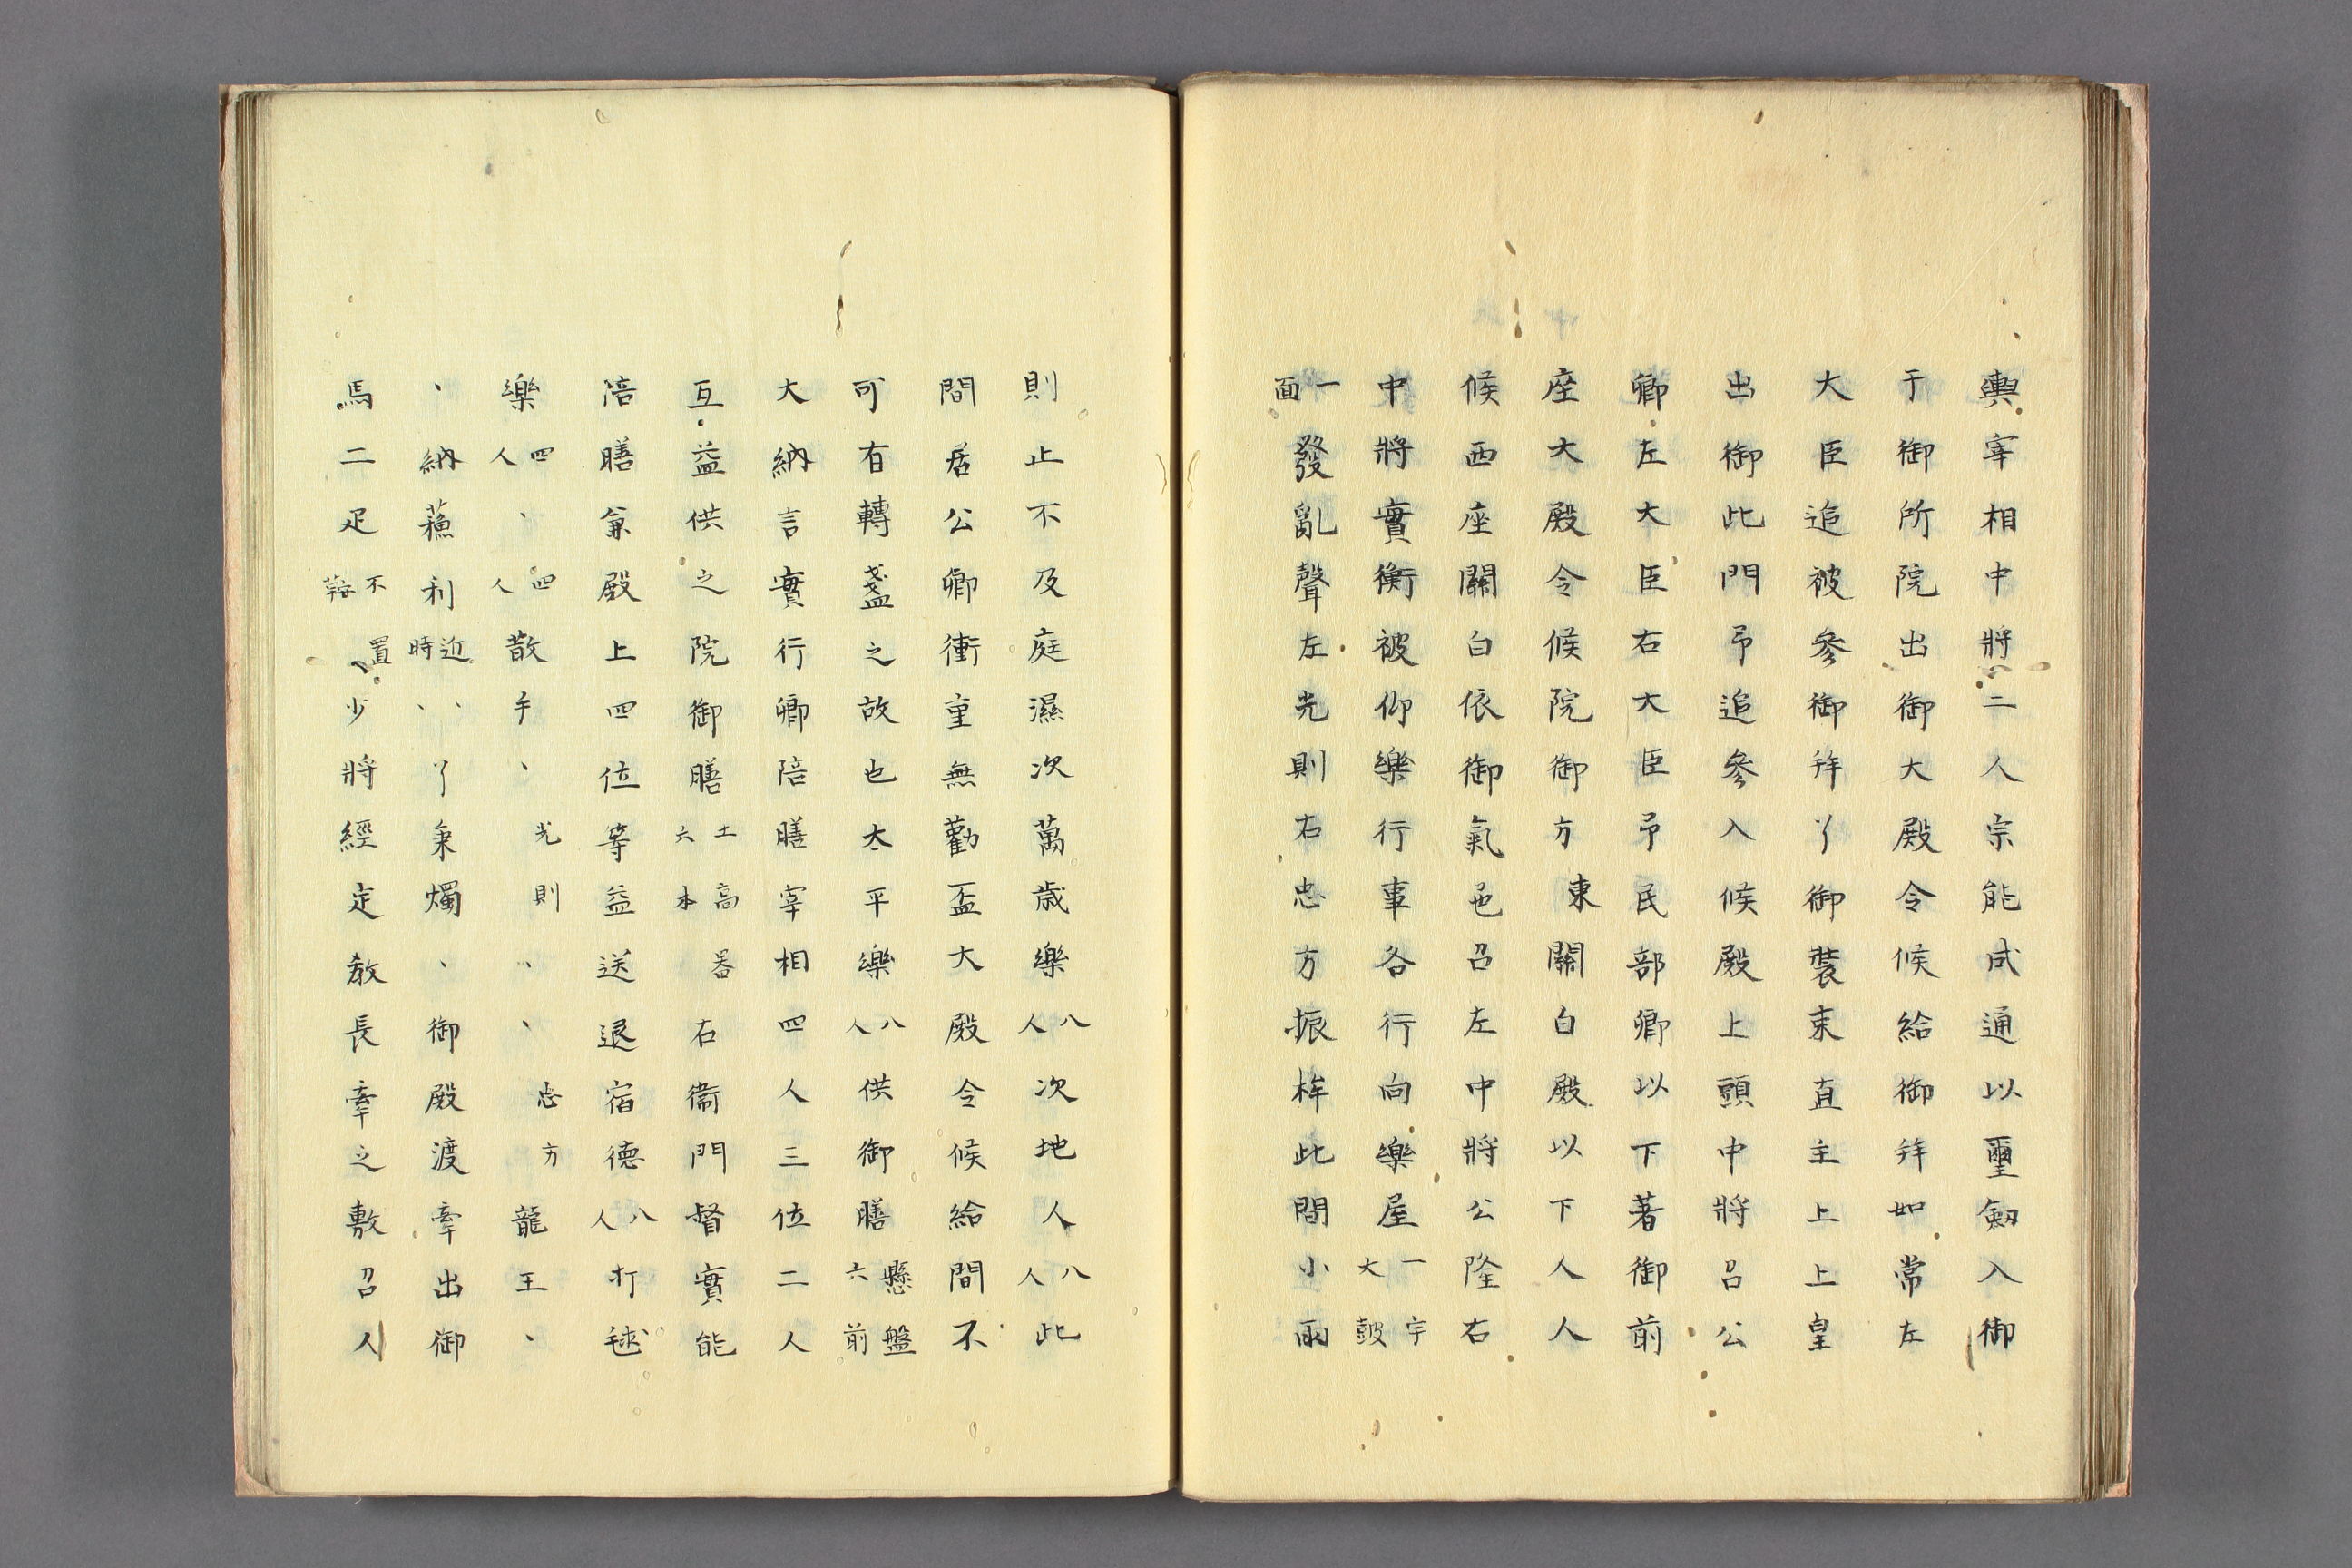 輿宰相中將二人宗能成通以璽劔入御
于御所院出御大殿令候給御拜如常左
大臣追被參御拜了御裝束直主上上皇
出御此門予追參入候殿上頭中將召公
卿左大臣右大臣予民部卿以下著御前
座大殿令候院御方東關白殿以下人人
候西座關白依御氣色召左中將公隆右
中將實衡被仰樂行事各行向樂屋一宇大鼓
一面發亂聲左光則右忠方振桙此間小雨
則止不及庭濕次萬歳樂八人次地人八人此
間居公卿衝重無勸盃大殿令候給間不
可有轉盞之故也太平樂八人供御膳懸盤六前
大納言實行卿陪膳宰相四人三位二人
互益供之院御膳土高器六本右衞門督實能
陪膳兼殿上四位等益送退宿德八人打毬
樂四人、四人散手、光則、、忠方龍王、
、納蘓利近時、、了秉燭、御殿渡牽出御
馬二疋不置鞍少將經定敎長牽之敷召人